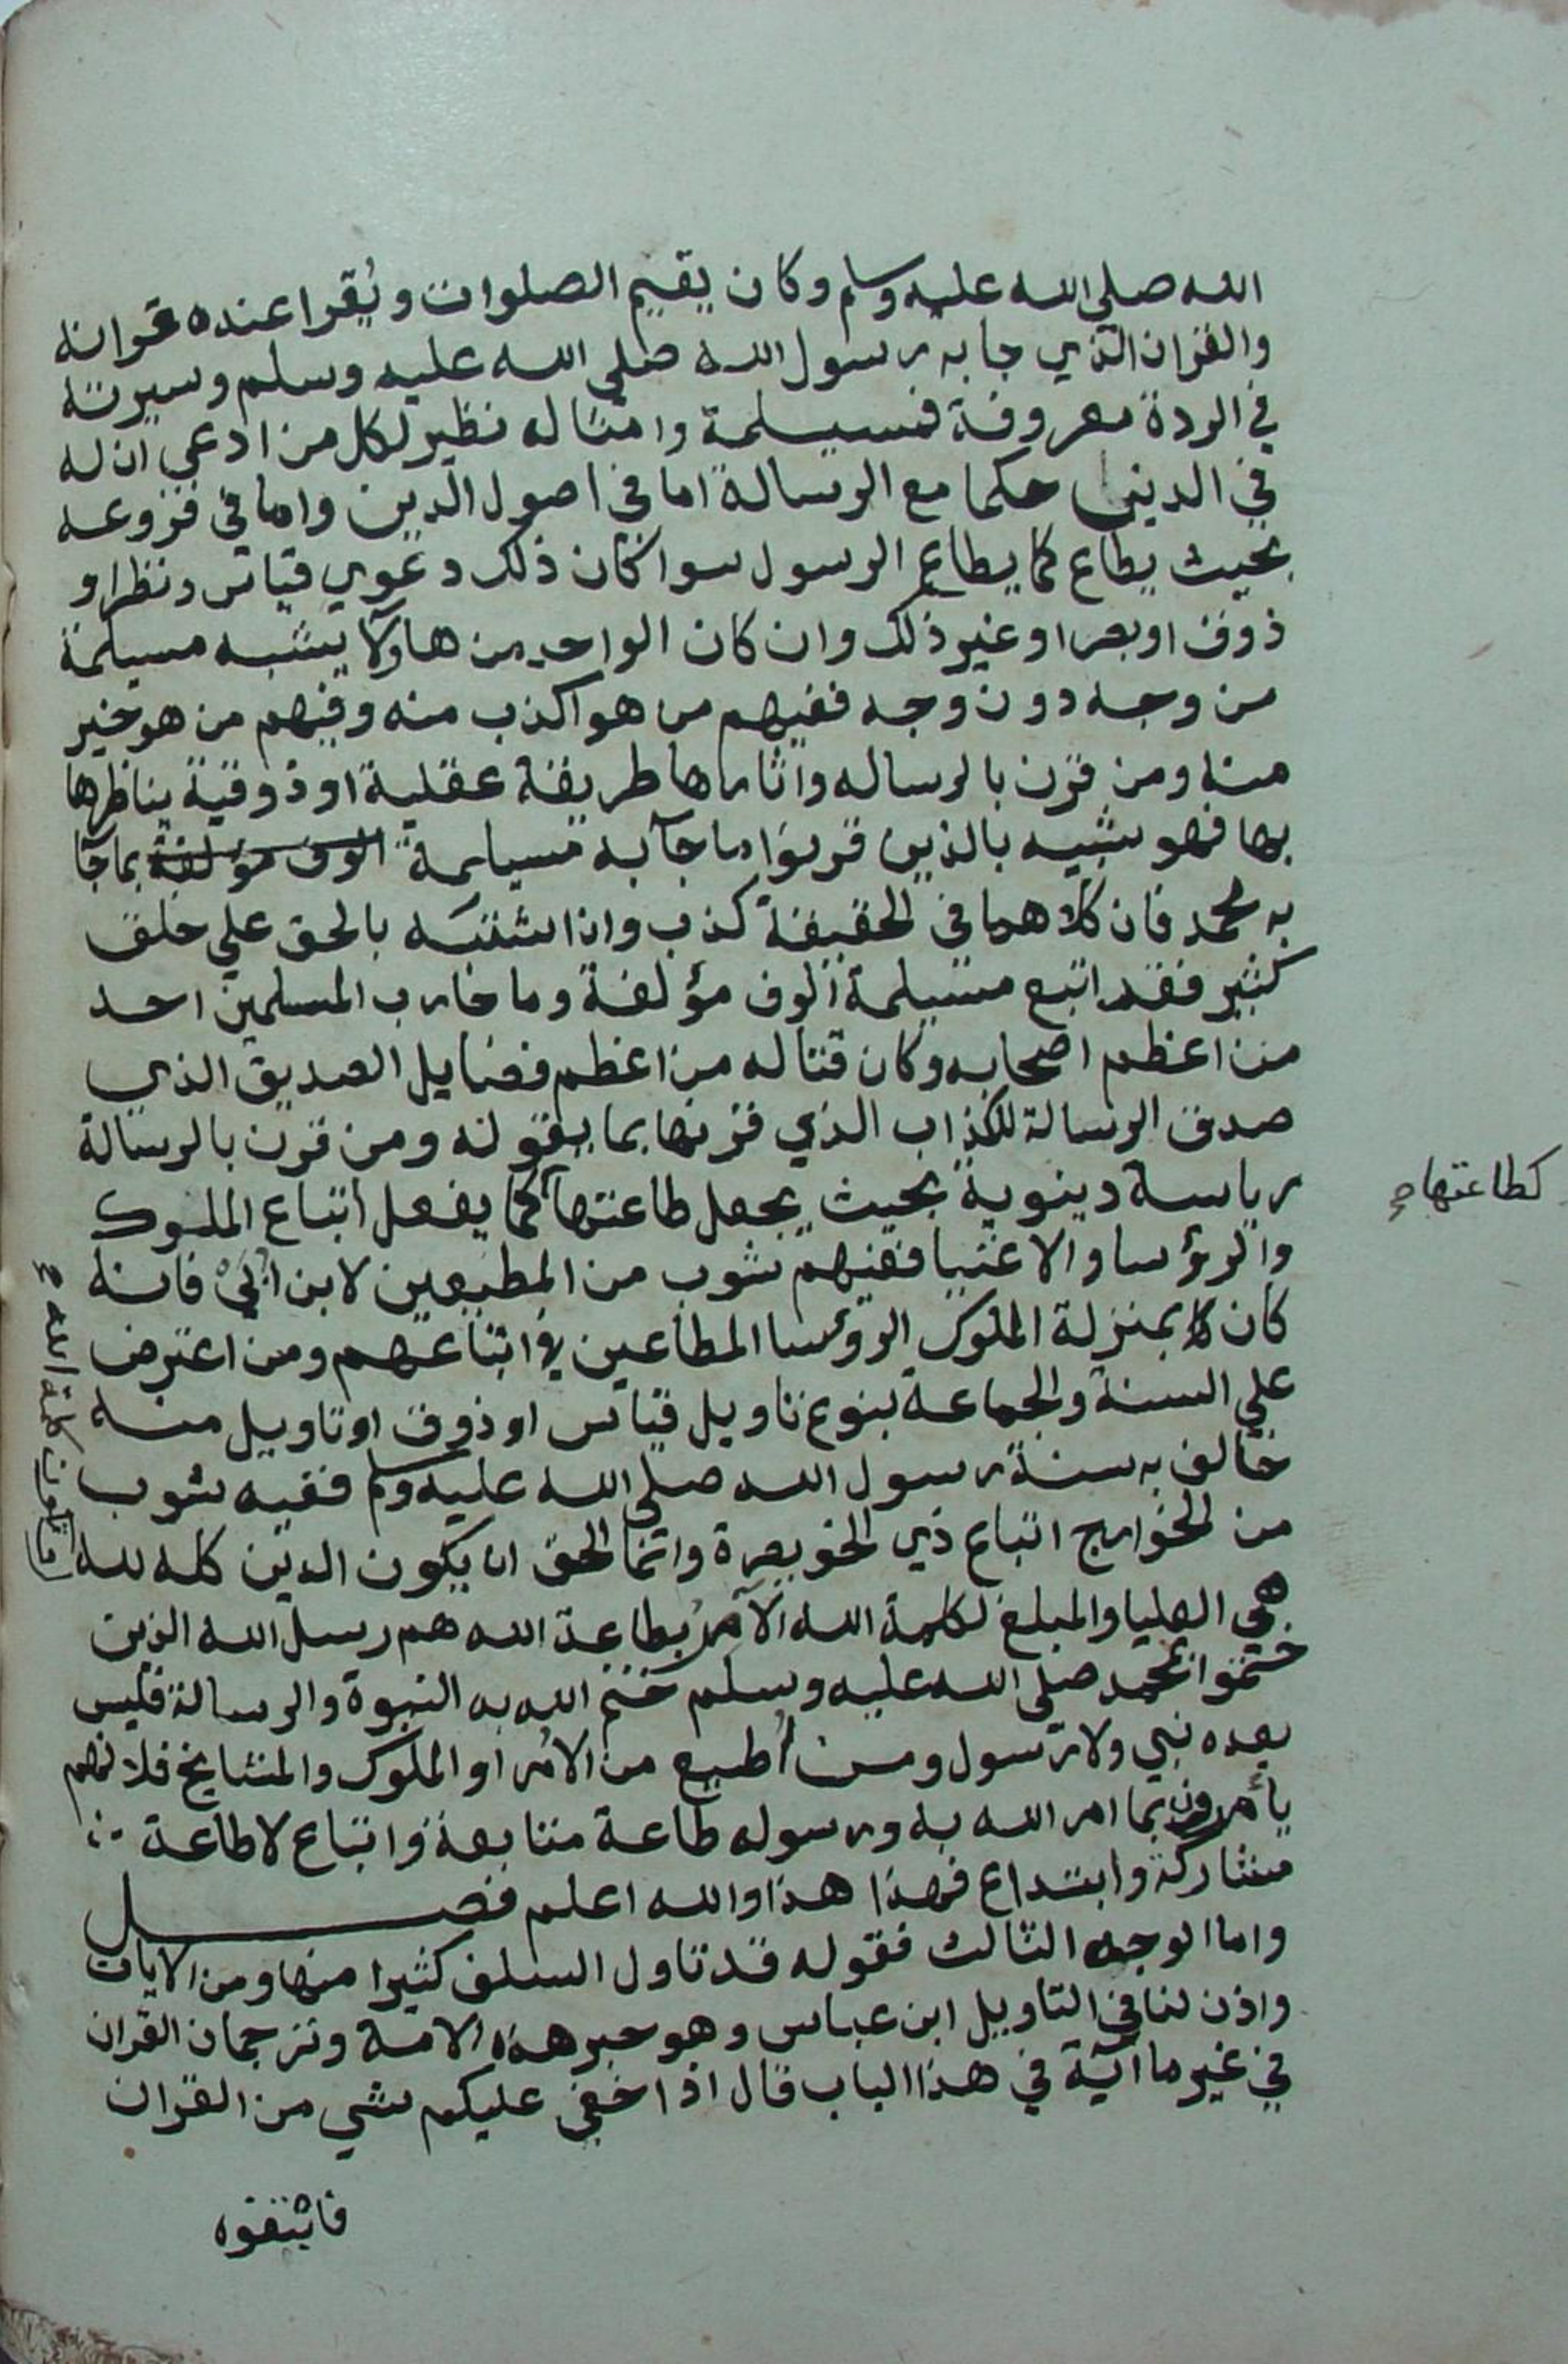 الله صلي الله عليه وسلم وكان يقيم الصلوات ويُقرا عنده قرانه
والقران الذي جا به رسول الله صلي الله عليه وسلم وسيرته
في الردة معروفة فمسيلمة وامثاله نظير لكل من ادعي ان له
في الدين حكما مع الرسالة اما في اصول الدين واما في فروعه
بحيث يطاع كما يطاع الرسول سوا كان ذلك دعوي قياس ونظر او
ذوق او بصر او غير ذلك وان كان الواحد من هاولآ يشبه مسيلمة
من وجه دون وجه ففيهم من هو اكذب منه وفيهم من هو خير
منه ومن قرن بالرساله واثارها طريقة عقلية او ذوقية يناظرها
بها فهو شبيه بالذين قرنوا ما جآ به مسيلمة الوف مؤلفة بما جآ
به محمد فان كلاهما في الحقيقة كذب وان اشتبه بالحق علي خلق
كثير فقد اتبع مسيلمة الوف مؤلفة وما حارب المسلمين احد
من اعظم اصحابه وكان قتاله من اعظم فضايل الصديق الذي
صدق الرسالة للكذاب الذي قرنها بما يقوله ومن قرن بالرسالة
رياسة دينوية بحيث يجعل طاعتها كما يفعل اتباع الملوك
كطاعتها
والرؤسا والاغنيا ففيهم شوب من المطيعين لابن اُبَيْ فانه
كان بمنزلة الملوك الرؤسا المطاعين في اتباعهم ومن اعترض
علي السنة والجماعة بنوع تاويل قياس او ذوق او تاويل منه
خالف به سنة رسول الله صلي الله عليه وسلم ففيه شوب
من الخوارج اتباع ذي الخويصرة وانما الحق ان يكون الدين كله لله
وتكون كلمة الله
هي العليا والمبلغ لكلمة الله الآمرُ بطاعة الله هم رسل الله الذين
ختموا بمحمد صلي الله عليه وسلم ختم الله به النبوة والرسالة فليس
بعده نبي ولا رسول ومن اُطيع من الامرا والملوك والمشايخ فلانهم
يأمرون بما امر الله به ورسوله طاعة متابعة واتباع لا طاعة
مشاركة وابتداع فهذا هذا والله اعلم فصل
واما الوجه الثالث فقوله قد تاول السلف كثيرا منها ومن الايات
واذن لنا في التاويل ابن عباس وهو حبر هذه الامة وترجمان القران
في غير ما آية في هذا الباب قال اذا خفي عليكم شي من القران
فابتغوه